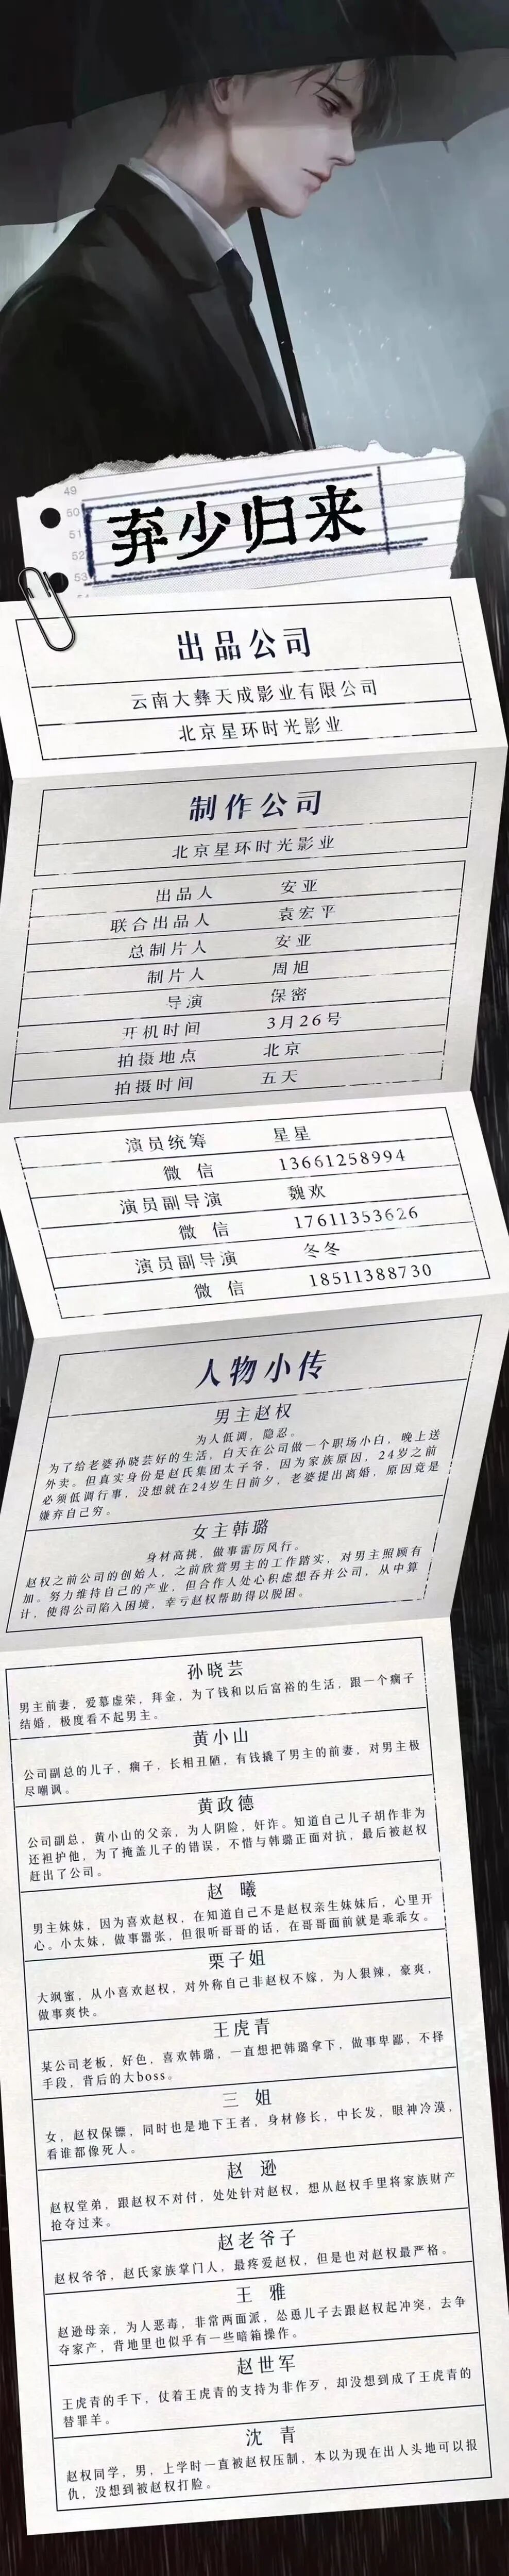 49
50
51
52
53
弃少归来
出品公司
云南大彝天成影业有限公司
北京星环时光影业
制作公司
北京星环时光影业
出品人 安亚
联合出品人 袁宏平
总制片人 安亚
制片人 周旭
导演 保密
开机时间 3月26号
拍摄地点 北京
拍摄时间 五天
演员统筹 星星
微 信 13661258994
演员副导演 魏欢
微 信 17611353626
演员副导演 冬冬
微 信 18511388730
人物小传
男主赵权
为人低调，隐忍。
为了给老婆孙晓芸好的生活，白天在公司做一个职场小白，晚上送
外卖。但真实身份是赵氏集团太子爷，因为家族原因，24岁之前
必须低调行事，没想就在24岁生日前夕，老婆提出离婚，原因竟是
嫌弃自己穷。
女主韩璐
身材高挑，做事雷厉风行。
赵权之前公司的创始人，之前欣赏男主的工作踏实，对男主照顾有
加。努力维持自己的产业，但合作人处心积虑想吞并公司，从中算
计，使得公司陷入困境，幸亏赵权帮助得以脱困。
孙晓芸
男主前妻，爱慕虚荣，拜金，为了钱和以后富裕的生活，跟一个瘸子
结婚，极度看不起男主。
黄小山
公司副总的儿子，瘸子，长相丑陋，有钱撬了男主的前妻，对男主极
尽嘲讽。
黄政德
公司副总，黄小山的父亲，为人阴险，奸诈。知道自己儿子胡作非为
还袒护他，为了掩盖儿子的错误，不惜与韩璐正面对抗，最后被赵权
赶出了公司。
赵 曦
男主妹妹，因为喜欢赵权，在知道自己不是赵权亲生妹妹后，心里开
心。小太妹，做事嚣张，但很听哥哥的话，在哥哥面前就是乖乖女。
栗子姐
大飒蜜，从小喜欢赵权，对外称自己非赵权不嫁，为人狠辣，豪爽，
做事爽快。
王虎青
某公司老板，好色，喜欢韩璐，一直想把韩璐拿下，做事卑鄙，不择
手段，背后的大boss。
三 姐
女，赵权保镖，同时也是地下王者，身材修长，中长发，眼神冷漠，
看谁都像死人。
赵 逊
赵权堂弟，跟赵权不对付，处处针对赵权，想从赵权手里将家族财产
抢夺过来。
赵老爷子
赵权爷爷，赵氏家族掌门人，最疼爱赵权，但是也对赵权最严格。
王 雅
赵逊母亲，为人恶毒，非常两面派，怂恿儿子去跟赵权起冲突，去争
夺家产，背地里也似乎有一些暗箱操作。
赵世军
王虎青的手下，仗着王虎青的支持为非作歹，却没想到成了王虎青的
替罪羊。
沈 青
赵权同学，男，上学时一直被赵权压制，本以为现在出人头地可以报
仇，没想到被赵权打脸。